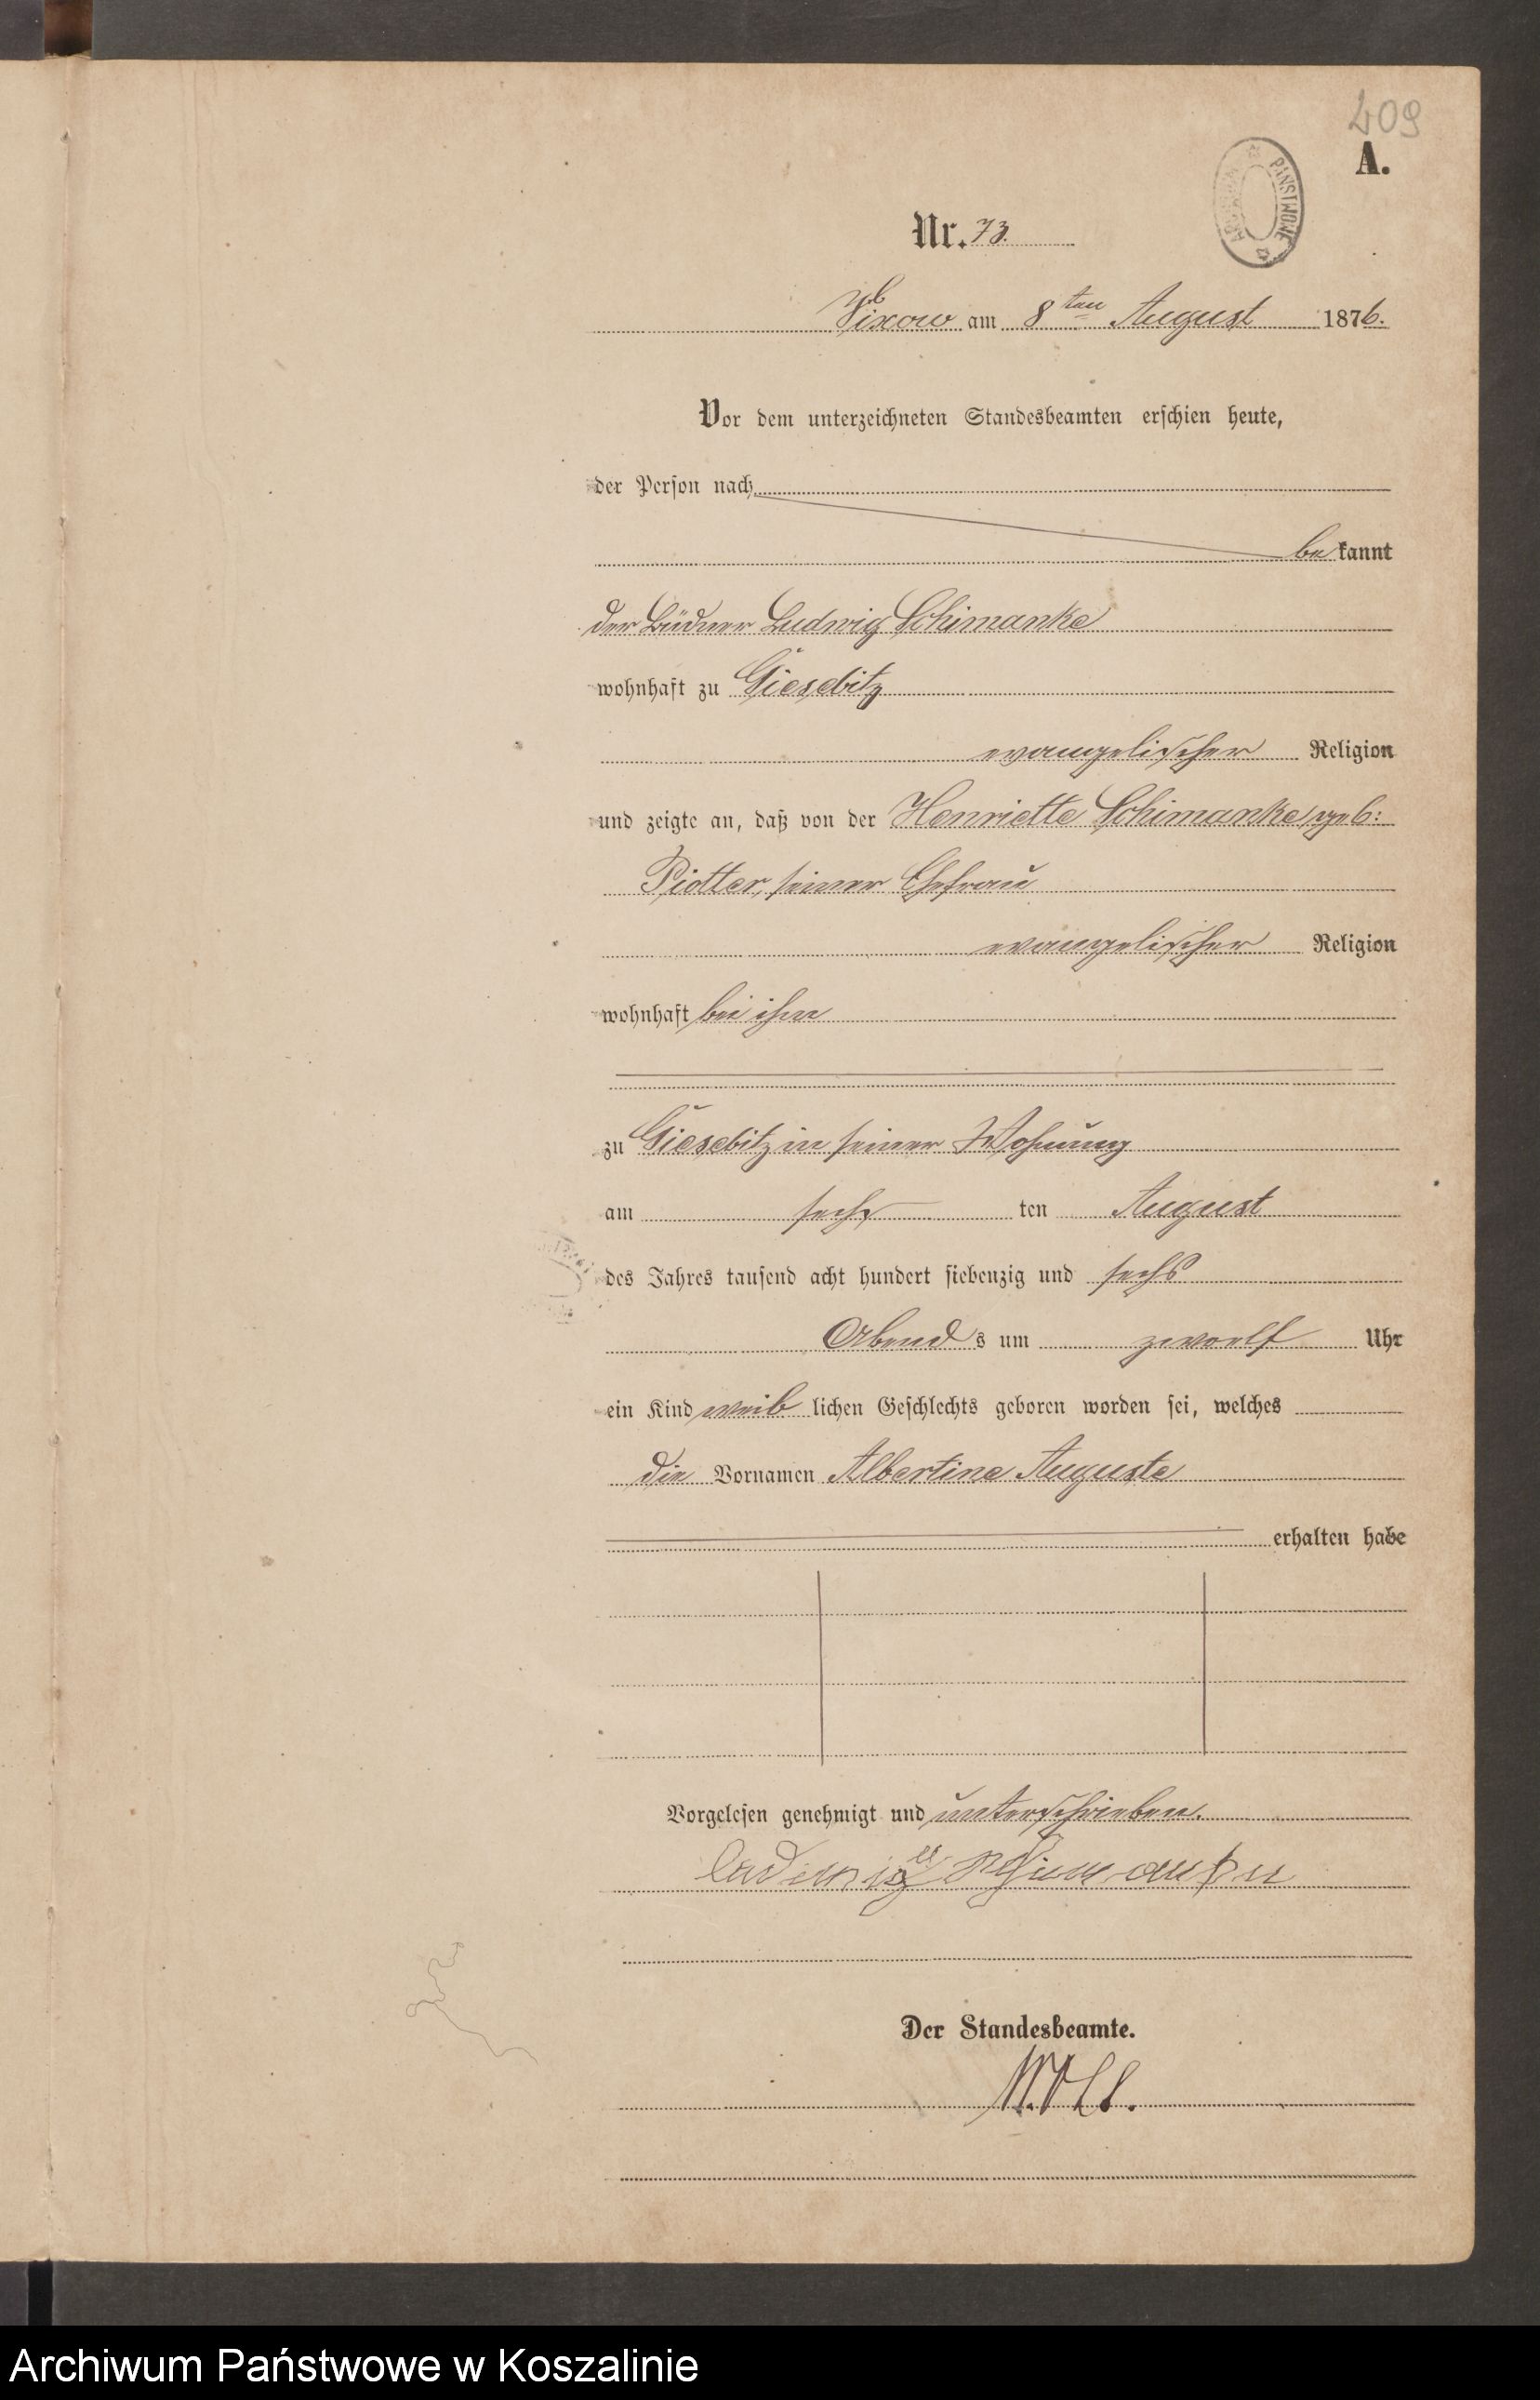 409
A.
PAŃSTWOWE
Nr. 73.
Vixow am 8ten August 1876.
Vor dem unterzeichneten Standesbeamten erschien heute,
der Person nach
bekannt
der Büdner Ludwig Schimanke
wohnhaft zu Giesebitz
evangelischer Religion
und zeigte an, daß von der Henriette Schimanke, geb:
Piotter, seiner Ehefrau
evangelischer Religion
wohnhaft bei ihm
zu Giesebitz in seiner Wohnung
am sechs ten August
des Jahres tausend acht hundert siebenzig und sechs
Abends um zwoelf Uhr
ein Kind weiblichen Geschlechts geboren worden sei, welches
die Vornamen Albertine Auguste
erhalten habe
Vorgelesen genehmigt und unterschrieben.
Ludwig Schimanke
Der Standesbeamte.
Archiwum Państwowe w Koszalinie